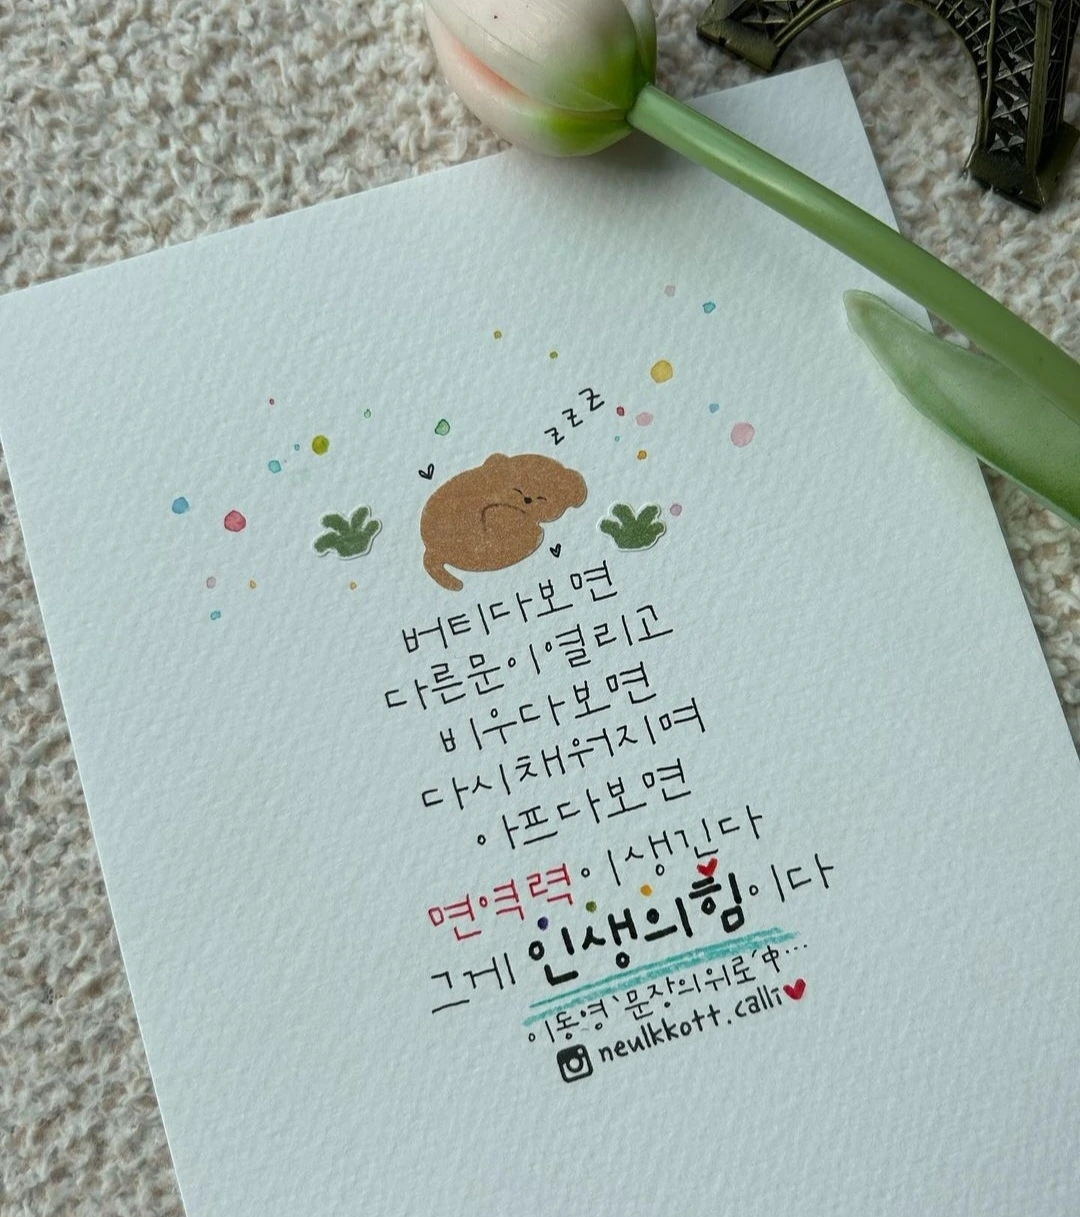 zzz
버티다보면
다른문이열리고
비우다보면
다시채워지며
아프다보면
면역력이생긴다
그게 인생의힘이다
이동영 '문장의위로' 中...
neulkkott.calli